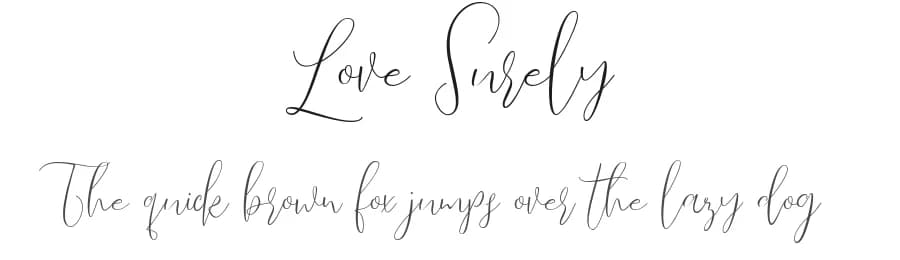 Love Surely
The quick brown fox jumps over the lazy dog